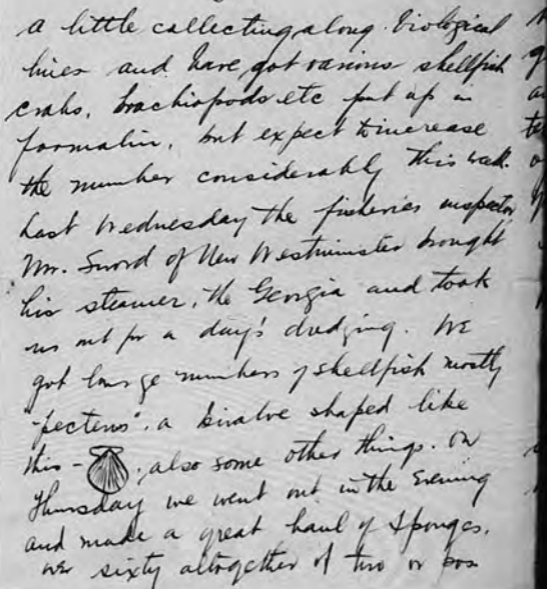 a little collecting along biological
lines and have got various shellfish
crabs, brachiopods etc put up in
formalin, but expect to increase
the number considerably this week.
Last Wednesday the fisheries inspector,
Mr. Sword of New Westminster brought
his steamer, the Georgia and took
us out for a day's dredging. We
got large numbers of shellfish mostly
"pectens". a bivalve shaped like
this - , also some other things. On
Thursday we went out in the evening
and made a great haul of sponges.
over sixty altogether of two or